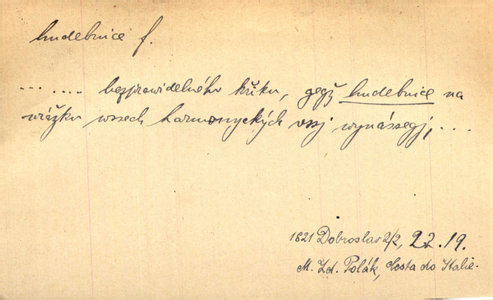 hudebnice f.
... .... bezprawidelného křiku, gegž hudebnice na
wrážku wssech harmonyckých ussj wynássegj, ...
1821 Dobroslav 2/2, 22.19.
M. Zd. Polák, Cesta do Italie.